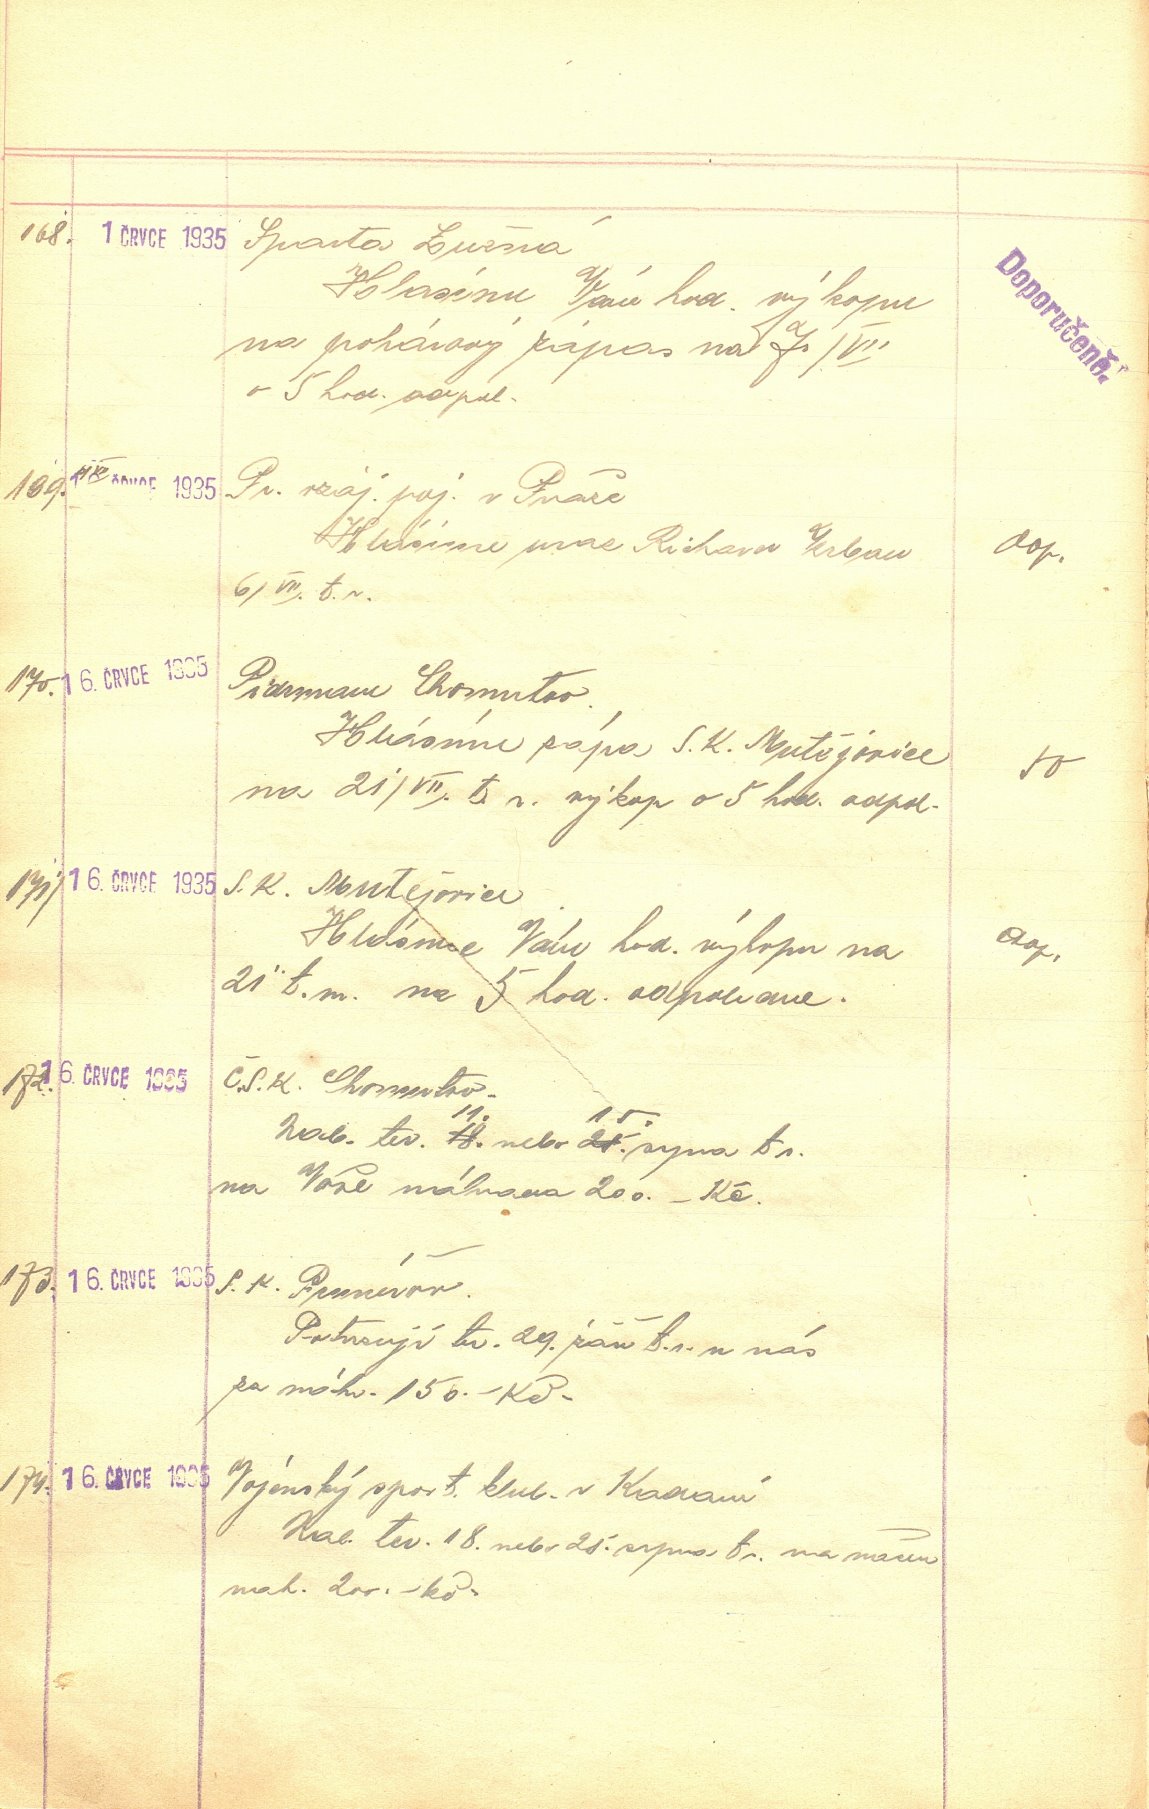 168. 1 ČRVCE 1935 Sparta Lužná
Hlasíme Vám hod. výkopu
na pohárový zápas na 7/VII
o 5 hod. odpol.
Doporučeně.
169. 1 ČRVCE 1935 Pr. vzáj. poj. v Praze
Hlásíme úraz Richard Urban
6/VII. t. r.
dop.
170. 16. ČRVCE 1935 Chomutov.
Hlásíme zápas S. K. Mutějovice
na 21/VII. t. r. výkop o 5 hod. odpol.
171 16. ČRVCE 1935 S. K. Mutějovice
Hlásíme Vám hod. výkopu na
21 t. m. na 5 hod. odpoledne.
dop.
172. 16. ČRVCE 1935 Č.S.K. Chomutov.
11. 15.
Nab. ter. 18. nebo 25. srpna t. r.
na Vaše náhrada 200.– Kč.
173. 16. ČRVCE 1935 S. K. Prunéřov.
Potvrzují ter. 29. září t. r. u nás
za náhr. 150.– Kč.
174. 16. ČRVCE 1935 Vojenský sport. klub. v Kadani
Nab. ter. 18. nebo 25. srpna t. r. na našem
nah. 200.– Kč.